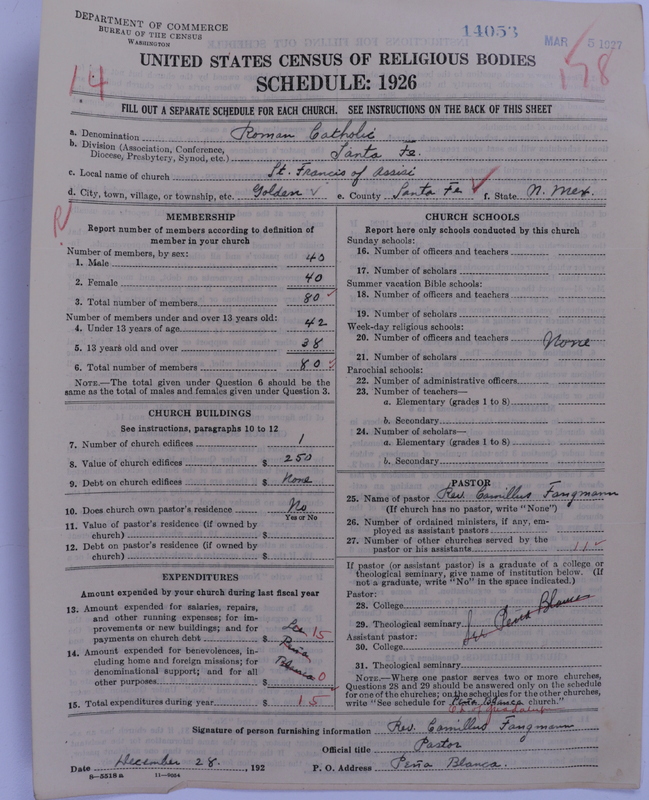 DEPARTMENT OF COMMERCE
BUREAU OF THE CENSUS
WASHINGTON
14053
MAR 5 1927
14
178
UNITED STATES CENSUS OF RELIGIOUS BODIES
SCHEDULE: 1926
FILL OUT A SEPARATE SCHEDULE FOR EACH CHURCH. SEE INSTRUCTIONS ON THE BACK OF THIS SHEET
a. Denomination Roman Catholic
b. Division (Association, Conference, Diocese, Presbytery, Synod, etc.) Santa Fe.
c. Local name of church St. Francis of Assisi
d. City, town, village, or township, etc. Golden ✓ e. County Santa Fe ✓ f. State N. Mex.
R
MEMBERSHIP
Report number of members according to definition of
member in your church
Number of members, by sex:
1. Male 40
2. Female 40
3. Total number of members 80 ✓
Number of members under and over 13 years old:
4. Under 13 years of age 42
5. 13 years old and over 38
6. Total number of members 80 ✓
NOTE.—The total given under Question 6 should be
same as the total of males and females given under Question 3.
CHURCH BUILDINGS
See instructions, paragraphs 10 to 12
7. Number of church edifices 1
8. Value of church edifices $ 250
9. Debt on church edifices $ None
10. Does church own pastor's residence No
Yes or No
11. Value of pastor's residence (if owned by
church) $
12. Debt on pastor's residence (if owned by
church) $
EXPENDITURES
Amount expended by your church during last fiscal year
13. Amount expended for salaries, repairs,
and other running expenses; for im-
provements or new buildings; and for
payments on church debt $ See 15
14. Amount expended for benevolences, in-
cluding home and foreign missions; for
denominational support; and for all
other purposes $ Peña Blanca 0
15. Total expenditures during year $ 15
CHURCH SCHOOLS
Report here only schools conducted by this church
Sunday schools:
16. Number of officers and teachers
17. Number of scholars
Summer vacation Bible schools:
18. Number of officers and teachers
19. Number of scholars
Week-day religious schools:
20. Number of officers and teachers None
21. Number of scholars
Parochial schools:
22. Number of administrative officers
23. Number of teachers—
a. Elementary (grades 1 to 8)
b. Secondary
24. Number of scholars—
a. Elementary (grades 1 to 8)
b. Secondary
PASTOR
25. Name of pastor Rev. Camillus Fangmann
(If church has no pastor, write "None")
26. Number of ordained ministers, if any, em-
ployed as assistant pastors
27. Number of other churches served by the
pastor or his assistants 11 ✓
If pastor (or assistant pastor) is a graduate of a college or
theological seminary, give name of institution below. (If
not a graduate, write "No" in the space indicated.)
Pastor:
28. College
29. Theological seminary See Peña Blanca
Assistant pastor:
30. College
31. Theological seminary
NOTE.—Where one pastor serves two or more churches,
Questions 28 and 29 should be answered only on the schedule
for one of the churches; on the schedules for the other churches,
write "See schedule for Peña Blanca church."
Signature of person furnishing information Rev. Camillus Fangmann
Official title Pastor
Date December 28, 192 P. O. Address Peña Blanca.
8—5518a 11—9034